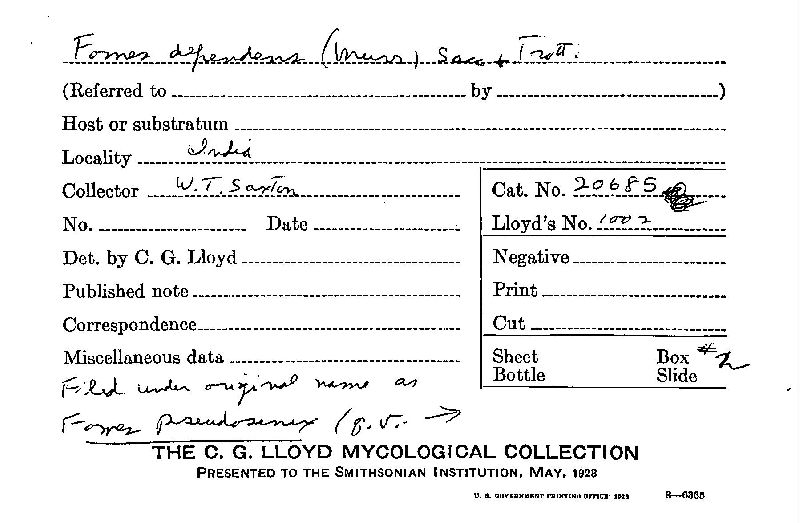 Fomes dependens (Murr) Sacc + Trott.
(Referred to by )
Host or substratum
Locality India
Collector W. T. Saxton
Cat. No. 20685
No. Date
Lloyd's No. 1002
Det. by C. G. Lloyd
Negative
Published note
Print
Correspondence
Cut
Miscellaneous data
Sheet Box #2
Bottle Slide
Filed under original name as
Fomes pseudosenex (q.v. →
THE C. G. LLOYD MYCOLOGICAL COLLECTION
PRESENTED TO THE SMITHSONIAN INSTITUTION, MAY, 1928
U. S. GOVERNMENT PRINTING OFFICE 1928 8—6365